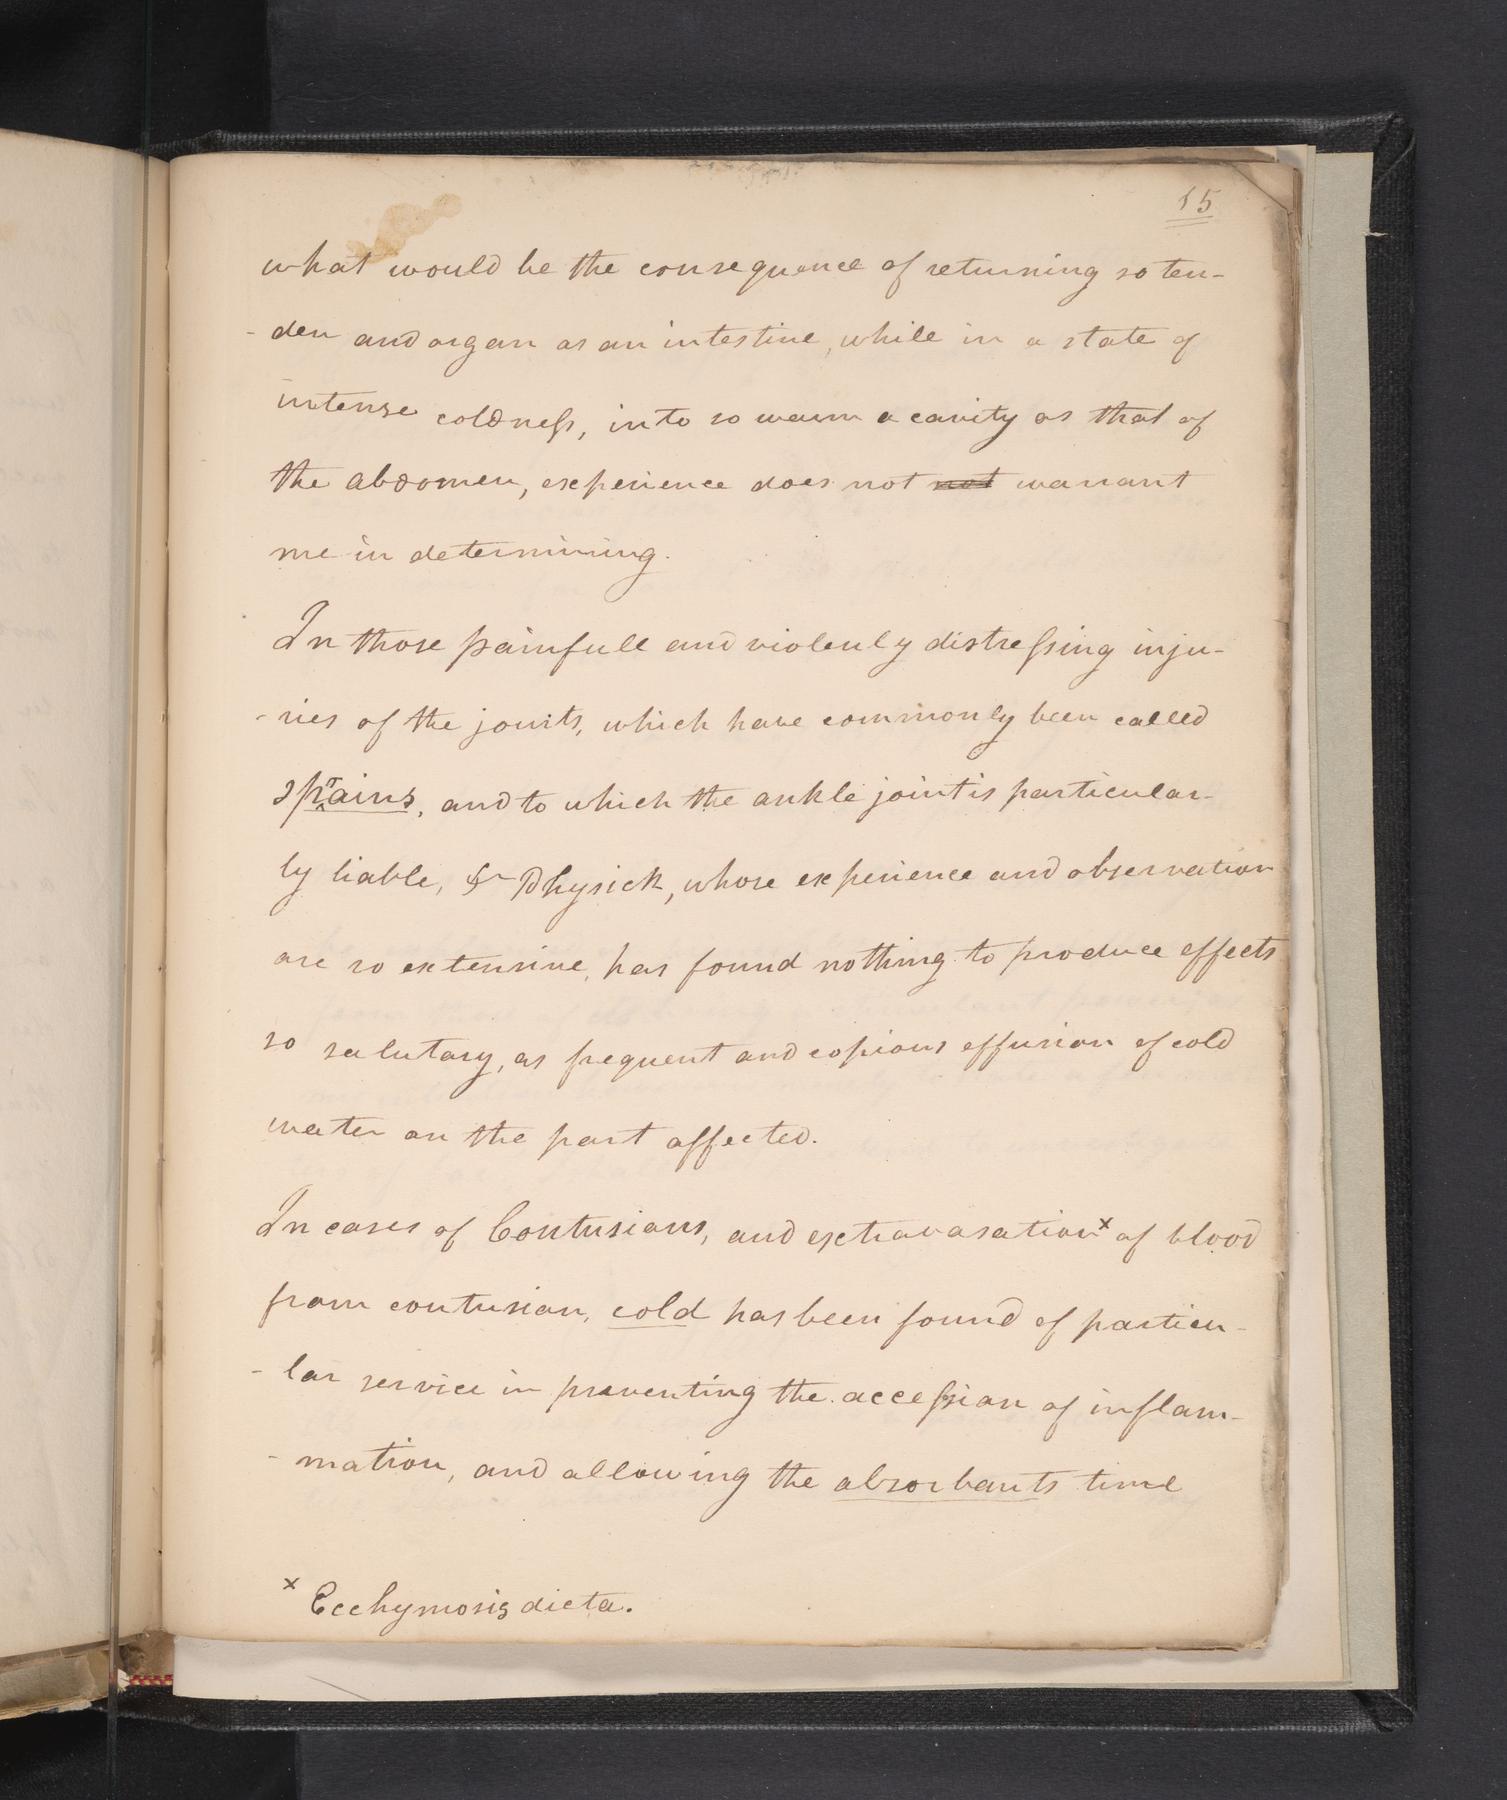 15
what would be the consequence of returning so ten-
- der and organ as an intestine, while in a state of
intense coldness, into so warm a cavity as that of
the abdomen, experience does not not warrant
me in determining.
In those painfull and violently distressing inju-
- ries of the joints, which have commonly been called
sprains, and to which the ankle joint is particular-
ly liable, Dr Physick, whose experience and observation
are so extensive, has found nothing to produce effects
so salutary, as frequent and copious effusion of cold
water on the part affected.
In cases of Contusions, and extravasation x of blood
from contusion, cold has been found of particu-
- lar service in preventing the accession of inflam-
- mation, and allowing the absorbants time
x Ecchymosis dicta.